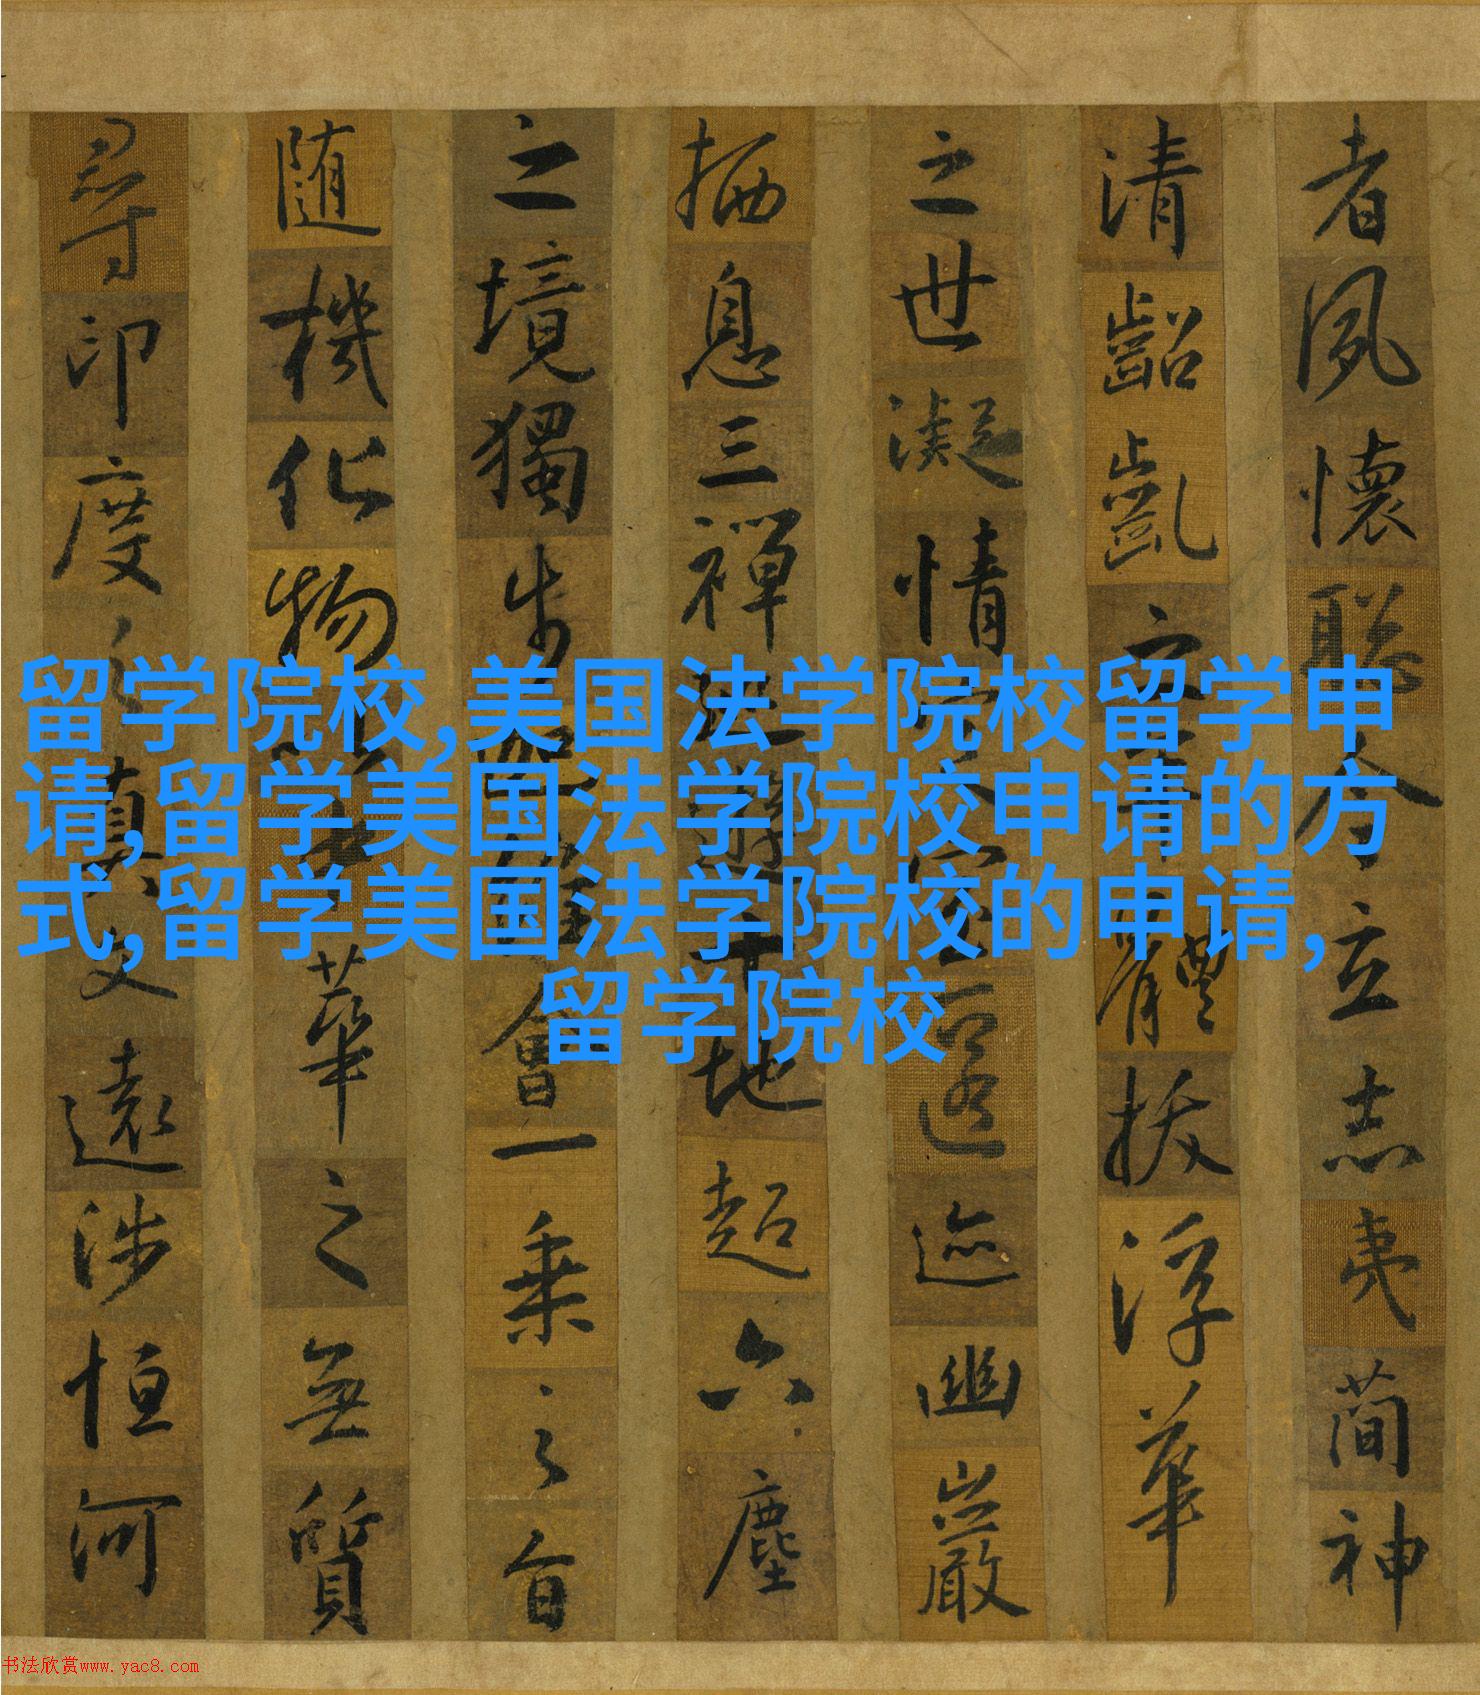 者夙懷聡令立志夷簡神
清齠齓之體拔浮華
之世凝情匿迹幽巖
栖息三禪地超六塵
之境獨步會一乘之旨
随機化物華之無質
尋印度之真文遠涉恒河
留学院校,美国法学院校留学申
请,留学美国法学院校申请的方
式,留学美国法学院校的申请,
留学院校
书法欣赏www.yac8.com